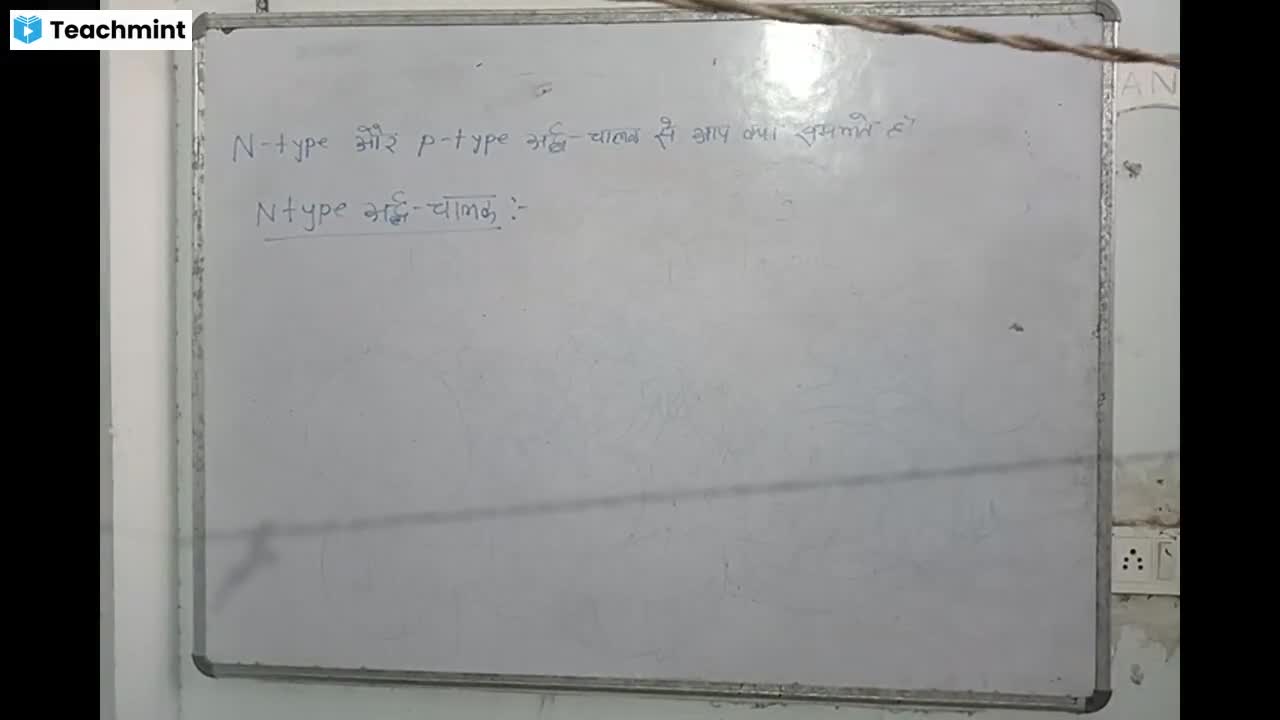 Teachmint
N-type और P-type अर्द्ध-चालक से आप क्या समझते है?
N type अर्द्ध-चालक :-
AN